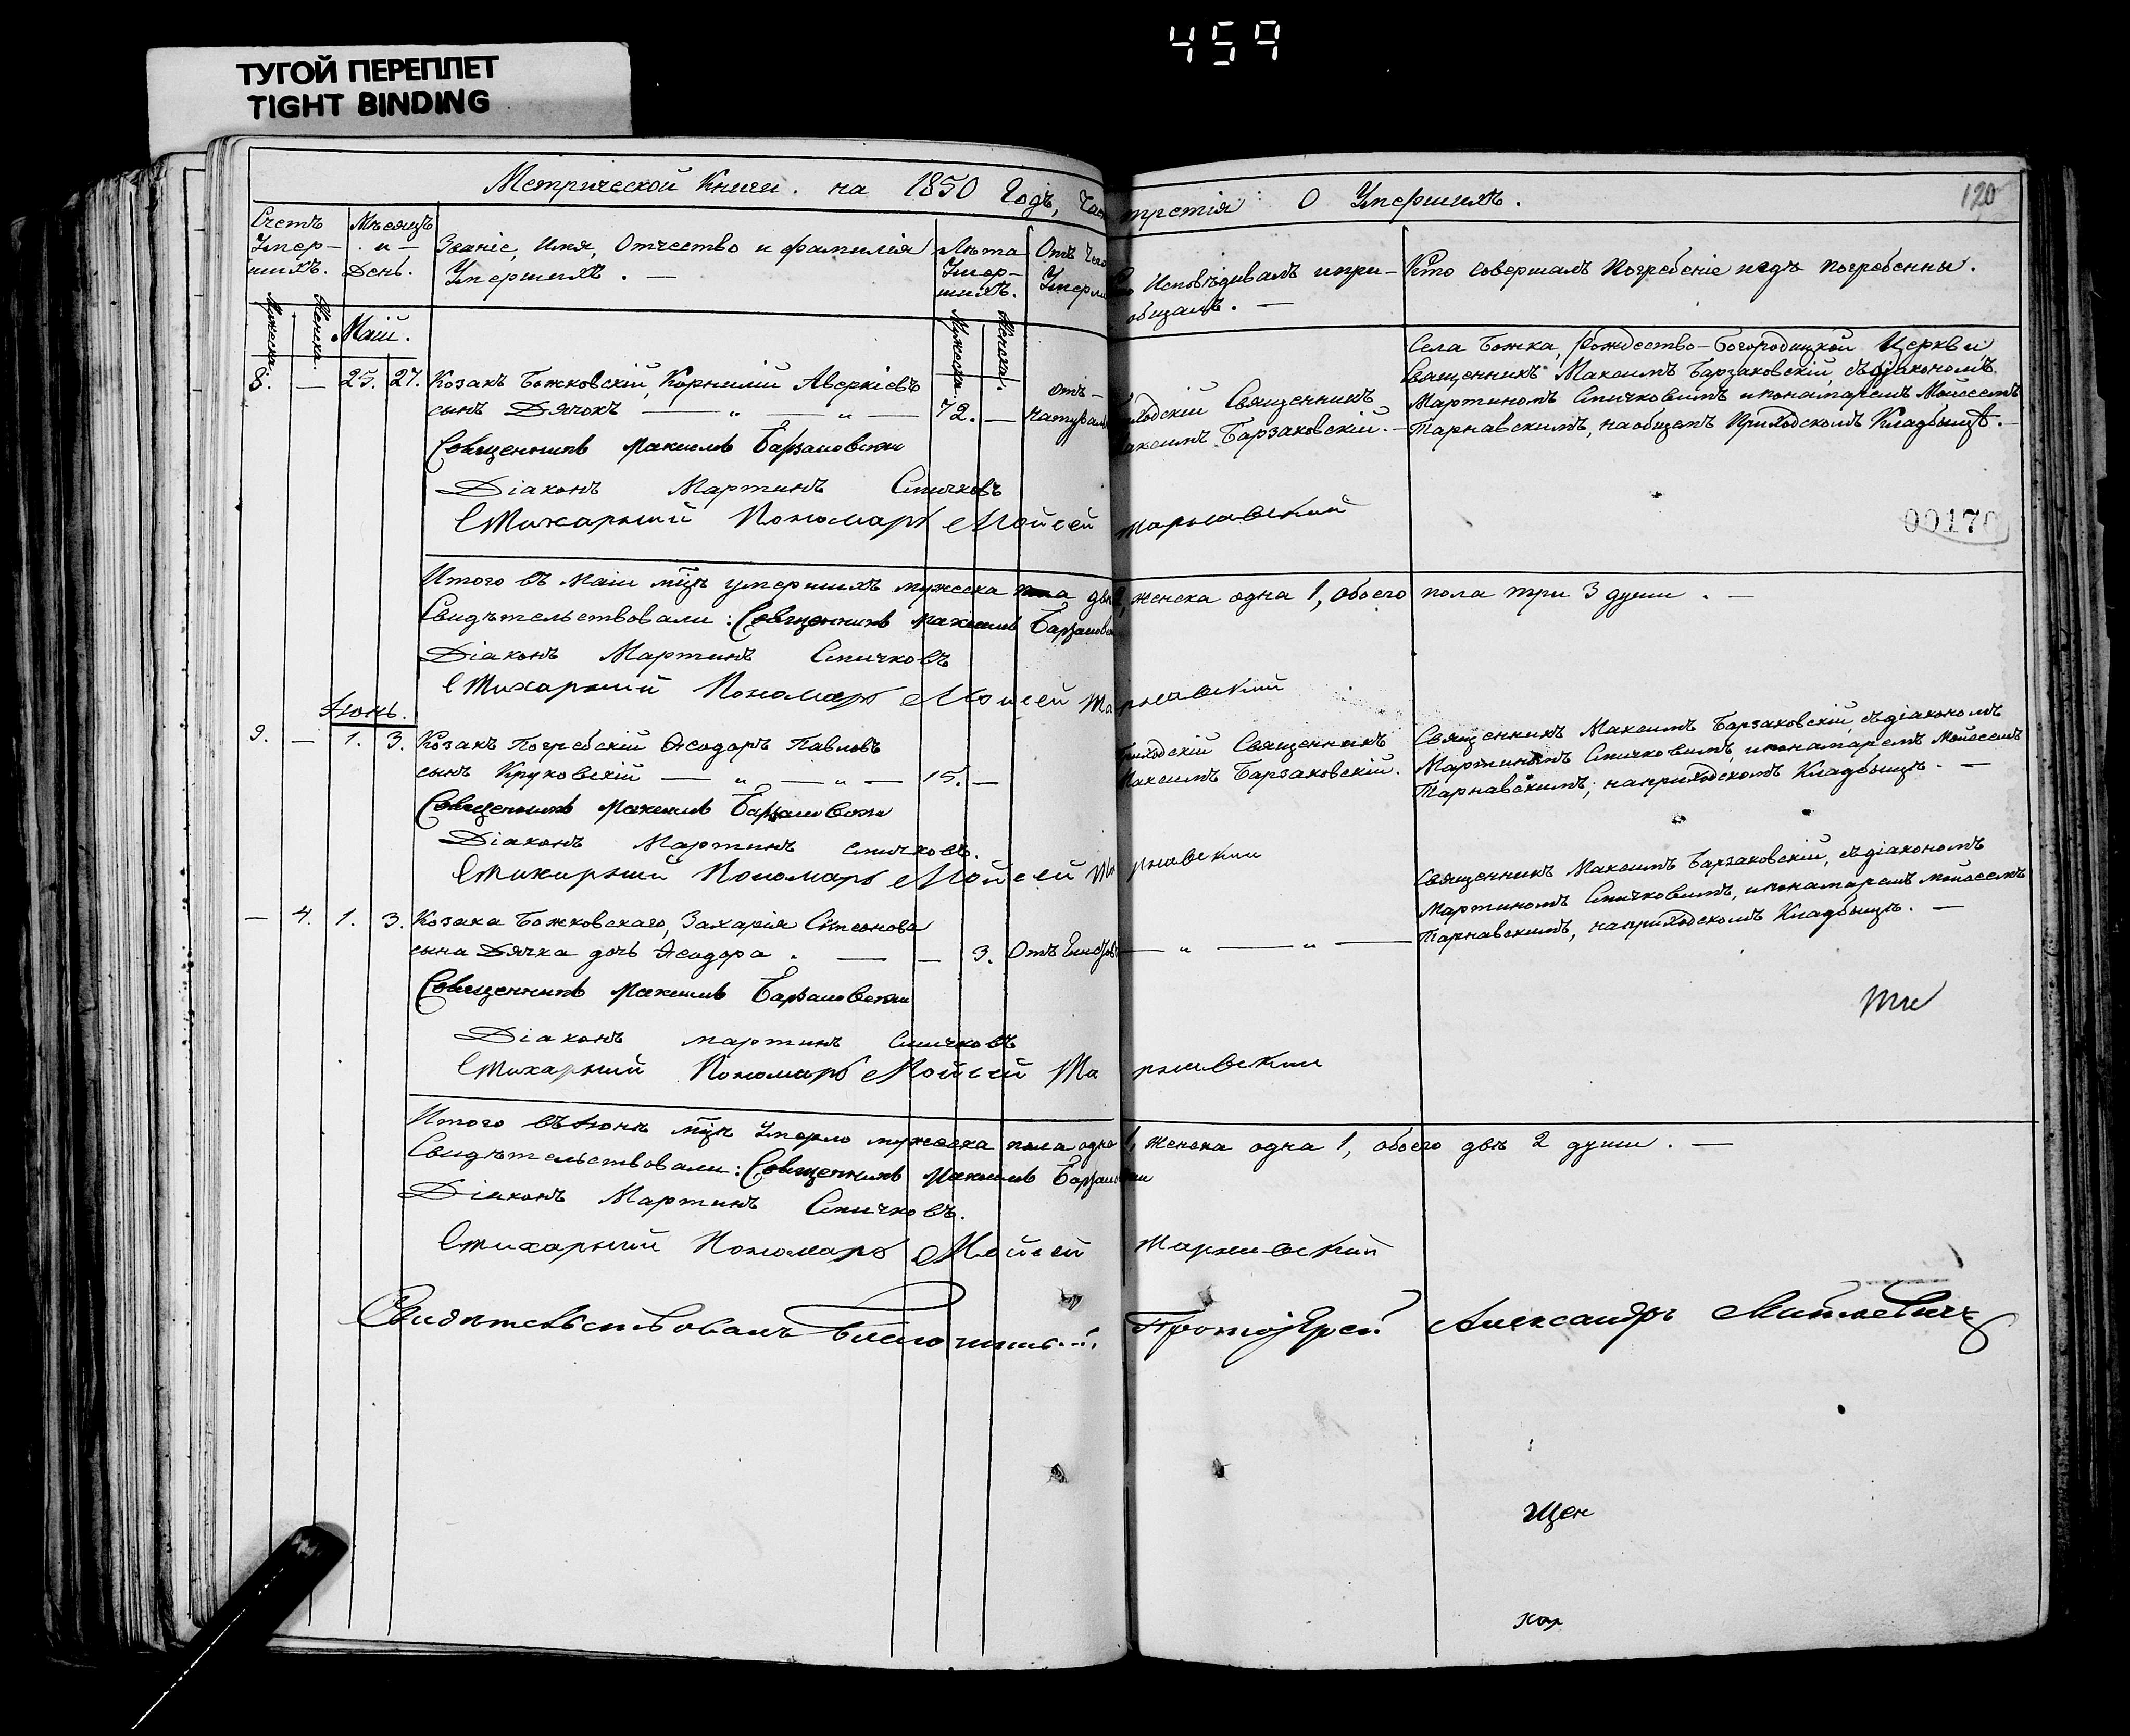 459
ТУГОЙ ПЕРЕПЛЕТ
TIGHT BINDING
120
Метрической Книги. на 1850 Годъ, Час третія О Умершихъ.
Счетъ Умер-шихъ.
Мѣсяцъ и День.
Званіе, Имя, Отчество и фамилія Умершихъ. —
Лѣта Умер-шихъ.
Отъ Чего Умерли
Исповѣдивалъ и прі-
общалъ. —
Кто Совершалъ Погребеніе и гдѣ погребенны.
Мужеска. Женска.
Маій.
Мужеска. Женска.
Села Божка, Рождество-Богородицкой Церкви
8. — 25. 27. Козакъ Божковскій, Корнилій Аверкіевъ
сынъ Дячокъ — „ — „ — 72. —
отъ-
Священникъ
Максимъ Барзаковскій. —
Священникъ Максимъ Барзаковскій, съ діакономъ
Мартиномъ Спичковимъ и понамаремъ Мойсеемъ
Тарнавскимъ, на общемъ Приходскомъ Кладбыщѣ. —
Священникъ Максимъ Барзаковскии
Діаконъ Мартинъ Спичковъ
Стихарный Пономарь Мойсей Тарнавский
00170
Итого въ Маіи мцѣ умершихъ мужеска пола двѣ 2, женска одна 1, обоего пола три 3 души. —
Свидѣтельствовали: Священникъ Максимъ Барзаковс
Діаконъ Мартинъ Спичковъ
Стихарный Пономарь Мойсей Тарнавский
Іюнь.
9. — 1. 3. Козакъ Погребскій Ѳеодоръ Павловъ
сынъ Круковскій — „ — „ — 15. —
Приходскій Священникъ
Максимъ Барзаковскій.
Священникъ Максимъ Барзаковскій, съ діакономъ
Мартиномъ Спичковимъ, и понамаремъ Мойсеемъ
Тарнавскимъ, на приходскомъ Кладбыщѣ. —
Священникъ Максимъ Барзаковски
Діаконъ Мартинъ Спичковъ.
Стихарный Пономарь Мойсей Тарнавский
— 4. 1. 3. Козака Божковскаго, Захарія Симеонова
сына Дячка дочь Ѳеодора. — — 3. Отъ — „ — „ —
Священникъ Максимъ Барзаковскій, съ діакономъ
Мартиномъ Спичковимъ, и понамаремъ Мойсеемъ
Тарнавскимъ, на приходскомъ Кладбыщѣ. —
Священникъ Максимъ Барзаковски
Діаконъ Мартинъ Спичковъ
Стихарный Пономарь Мойсей Тарнавский
Итого въ Іюнѣ мцѣ Умерло мужеска пола одна 1, женска одна 1, обоего двѣ 2 души. —
Свидѣтельствовали: Священникъ Максимъ Барзаковски
Діаконъ Мартинъ Спичковъ.
Стихарный Пономарь Мойсей Тарнавский
Свидѣтельствовалъ Протоіерей Александръ
щен